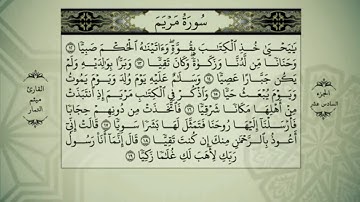 سُورَةُ مَرْيَمَ
يَـٰيَحْيَىٰ خُذِ ٱلْكِتَـٰبَ بِقُوَّةٍ ۖ وَءَاتَيْنَـٰهُ ٱلْحُكْمَ صَبِيًّا ١٢
وَحَنَانًا مِّن لَّدُنَّا وَزَكَوٰةً ۖ وَكَانَ تَقِيًّا ١٣ وَبَرًّۢا بِوَٰلِدَيْهِ وَلَمْ
يَكُن جَبَّارًا عَصِيًّا ١٤ وَسَلَـٰمٌ عَلَيْهِ يَوْمَ وُلِدَ وَيَوْمَ يَمُوتُ
وَيَوْمَ يُبْعَثُ حَيًّا ١٥ وَٱذْكُرْ فِى ٱلْكِتَـٰبِ مَرْيَمَ إِذِ ٱنتَبَذَتْ
مِنْ أَهْلِهَا مَكَانًا شَرْقِيًّا ١٦ فَٱتَّخَذَتْ مِن دُونِهِمْ حِجَابًا
فَأَرْسَلْنَآ إِلَيْهَا رُوحَنَا فَتَمَثَّلَ لَهَا بَشَرًا سَوِيًّا ١٧ قَالَتْ إِنِّىٓ
أَعُوذُ بِٱلرَّحْمَـٰنِ مِنكَ إِن كُنتَ تَقِيًّا ١٨ قَالَ إِنَّمَآ أَنَا۠ رَسُولُ
رَبِّكِ لِأَهَبَ لَكِ غُلَـٰمًا زَكِيًّا ١٩
الجزء
السادس عشر
القارئ
ميثم
التمار